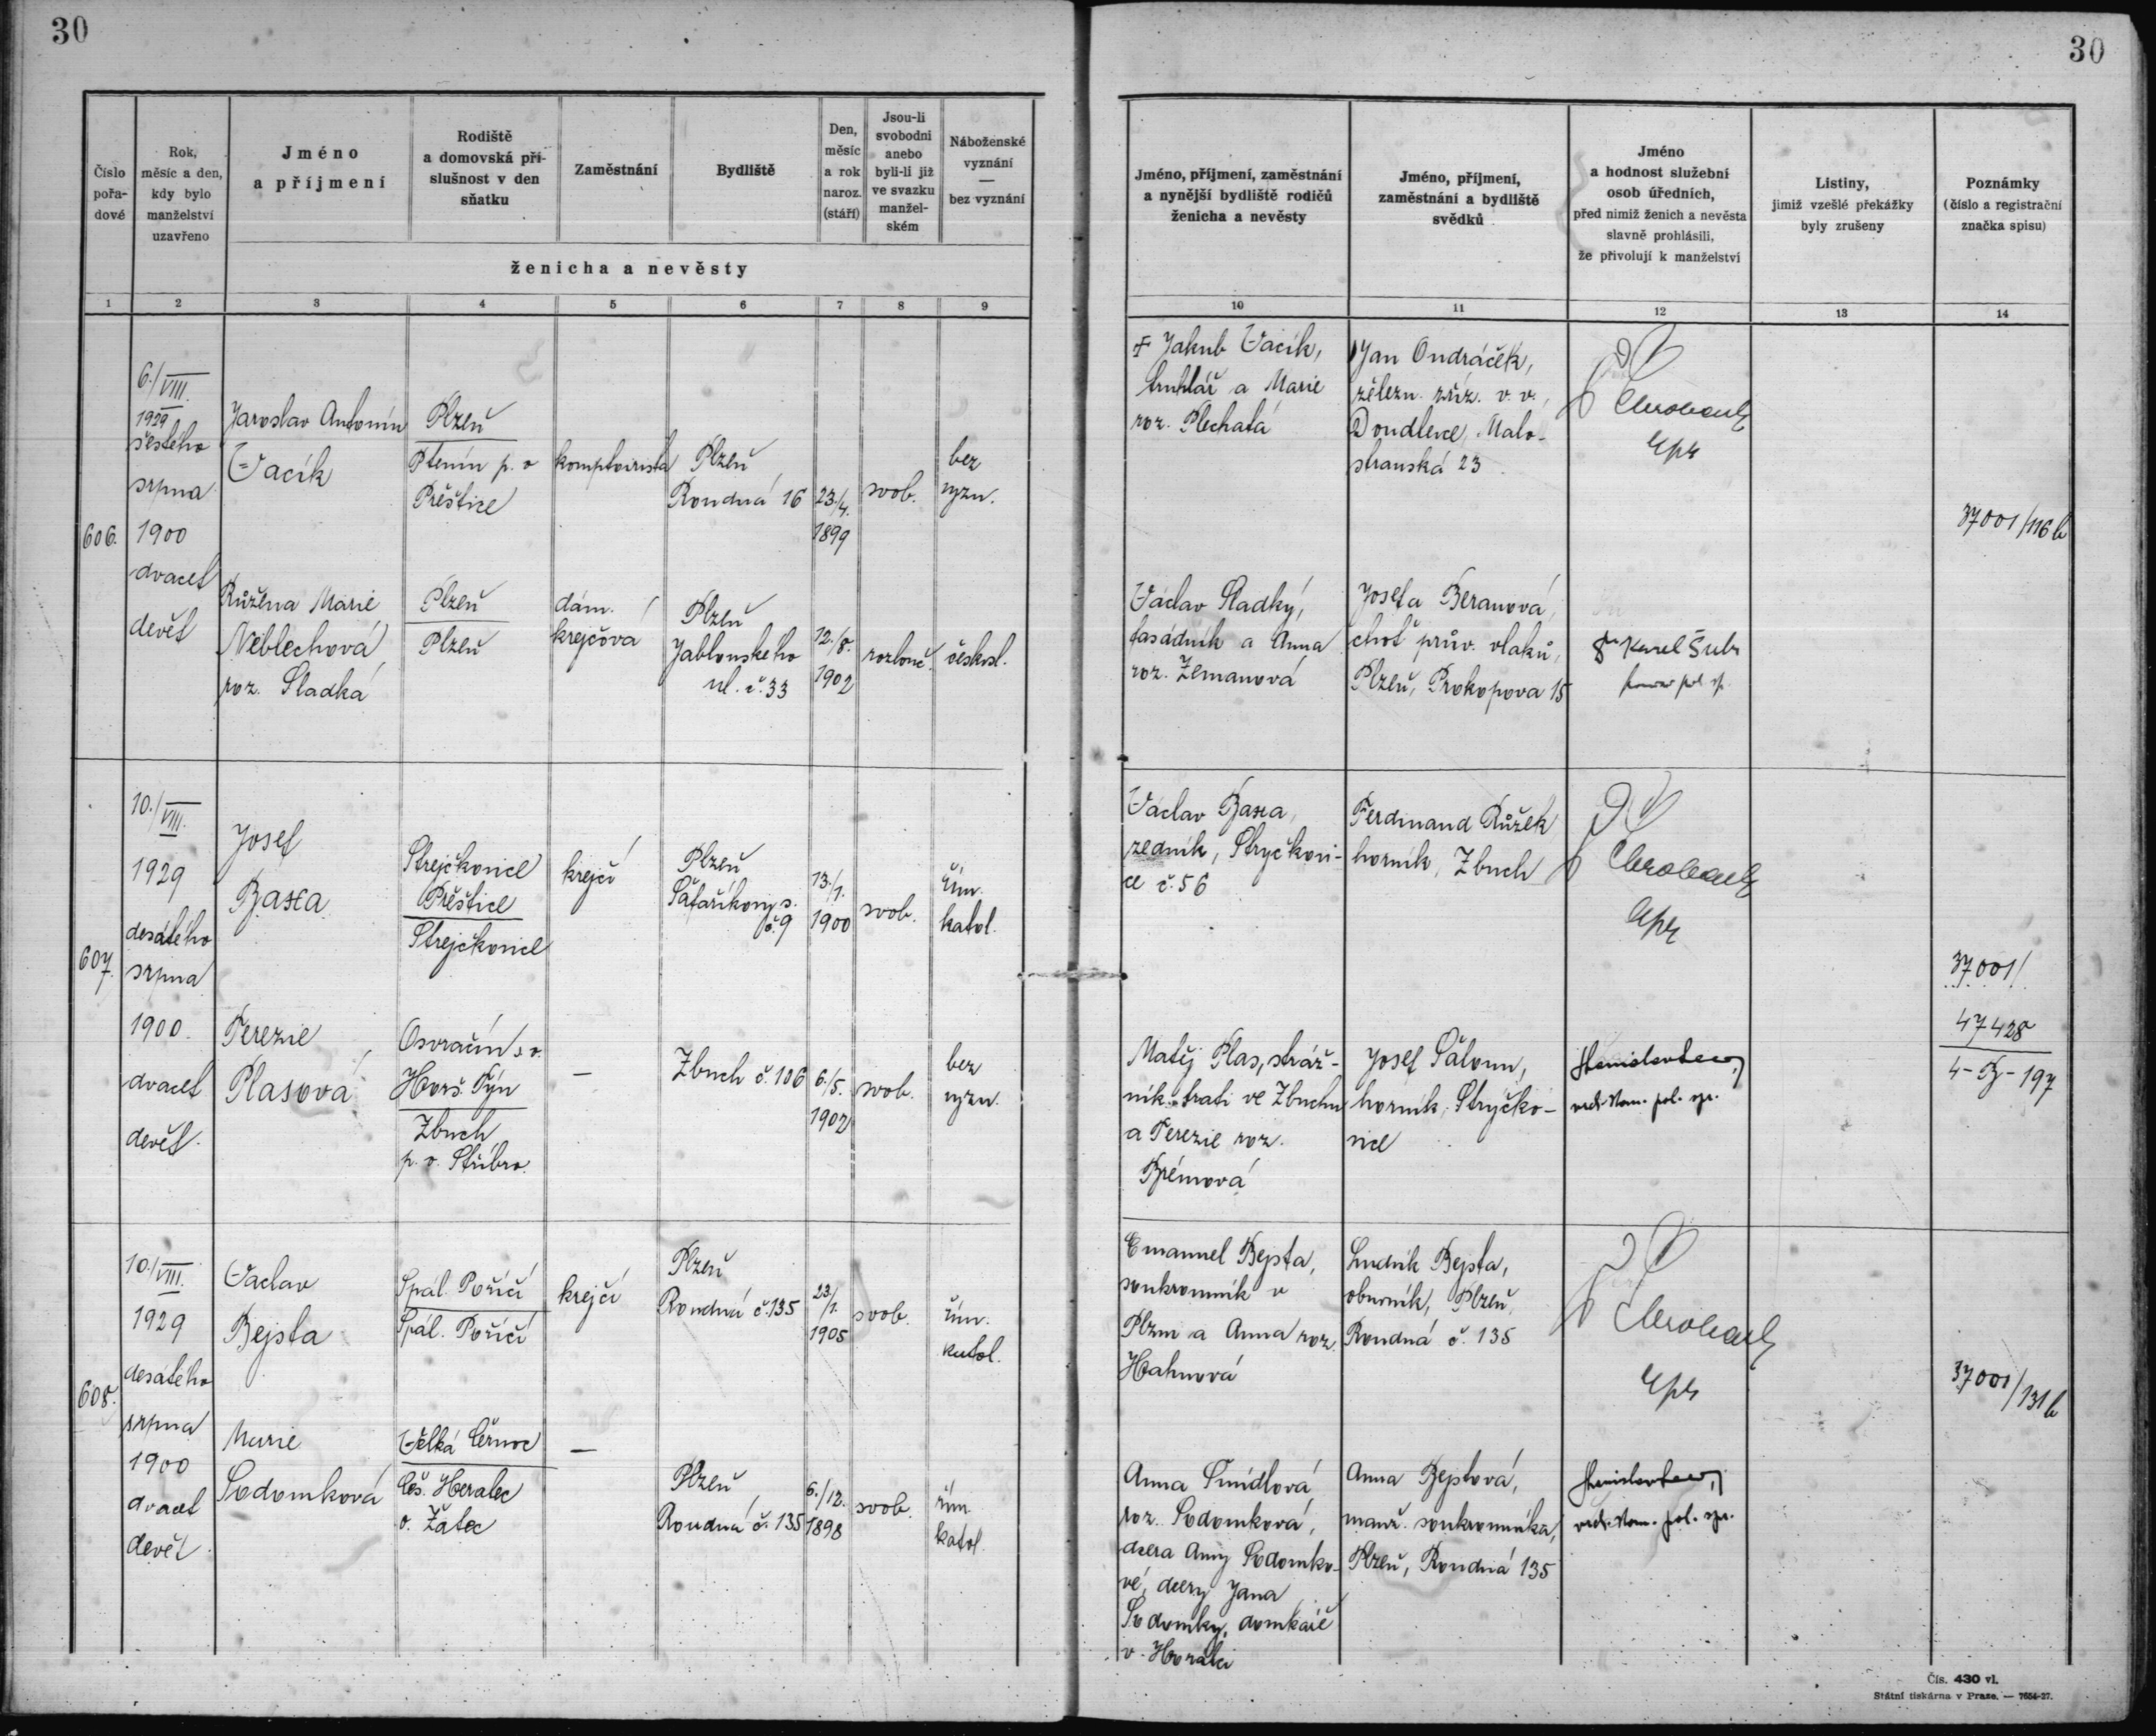 30
30
Číslo pořa-dové
Rok, měsíc a den, kdy bylo manželství uzavřeno
Jméno a příjmení
Rodiště a domovská pří-slušnost v den sňatku
Zaměstnání
Bydliště
Den, měsíc a rok naroz. (stáří)
Jsou-li svobodni anebo byli-li již ve svazku manžel-ském
Náboženské vyznání — bez vyznání
ženicha a nevěsty
Jméno, příjmení, zaměstnání a nynější bydliště rodičů ženicha a nevěsty
Jméno, příjmení, zaměstnání a bydliště svědků
Jméno a hodnost služební osob úředních, před nimiž ženich a nevěsta slavně prohlásili, že přivolují k manželství
Listiny, jimiž vzešlé překážky byly zrušeny
Poznámky (číslo a registrační značka spisu)
1 2 3 4 5 6 7 8 9 10 11 12 13 14
606.
6./VIII.
1929
šestého
srpna
1900
dvacet
devět
Jaroslav Antonín
Vacík
Plzeň
Ptenín p. o
Přeštice
komptoirista
Plzeň
Roudná 16
23./4.
1899
svob.
bez
vyzn.
Ɨ Jakub Vacík,
truhlář a Marie
roz. Plechatá
Jan Ondráček,
železn. zříz. v. v.,
Doudlevce, Malo-
stranská 23
37001/116 b
Růžena Marie
Neblechová
roz. Sladká
Plzeň
Plzeň
dám.
krejčová
Plzeň
Jablonského
ul. č. 33
12./8.
1902
rozlouč.
českosl.
Václav Sladký,
fasádník a Anna
roz. Zemanová
Josefa Beranová,
choť prův. vlaků,
Plzeň, Prokopova 15
Karel Šubr
607.
10./VIII.
1929
desátého
srpna
1900.
dvacet
devět.
Josef
Baxa
Strejčkovice
Přeštice
Strejčkovice
krejčí
Plzeň
Šafaříkovy s.
č. 9
13./1.
1900
svob.
řím.
katol.
Václav Baxa,
zedník, Stryčkovi-
ce č. 56
Ferdinand Růžek
horník, Zbuch
37001/
47428
4-B-197
Terezie
Plasová
Osvračín s. o.
Horš. Týn
Zbuch
p. o. Stříbro.
—
Zbuch č. 106
6./5.
1902
svob.
bez
vyzn.
Matěj Plas, stráž-
ník trati ve Zbuchu
a Terezie roz.
Brémová
Josef Šáloun,
horník, Stryčko-
vice
608.
10./VIII.
1929
desátého
srpna
1900
dvacet
devět.
Václav
Bejsta
Spál. Poříčí
Spál. Poříčí
krejčí
Plzeň
Roudná č. 135
23/1.
1905
svob.
řím.
katol.
Emanuel Bejsta,
soukromník v
Plzni a Anna roz.
Hahnová
Ludvík Bejsta,
obuvník, Plzeň,
Roudná č. 135
37001/131 b
Marie
Sodomková
Velká Černoc
Čes. Heralec
o. Žatec
—
Plzeň
Roudná č. 135
6./12.
1898
svob.
řím.
katol.
Anna Šmídlová,
roz. Sodomková,
dcera Anny Sodomko-
vé, dcery Jana
Sodomky, domkáře
v
Anna Bejstová,
manž. soukromníka,
Plzeň, Roudná 135
Čís. 430 vl.
Státní tiskárna v Praze. — 7654-27.